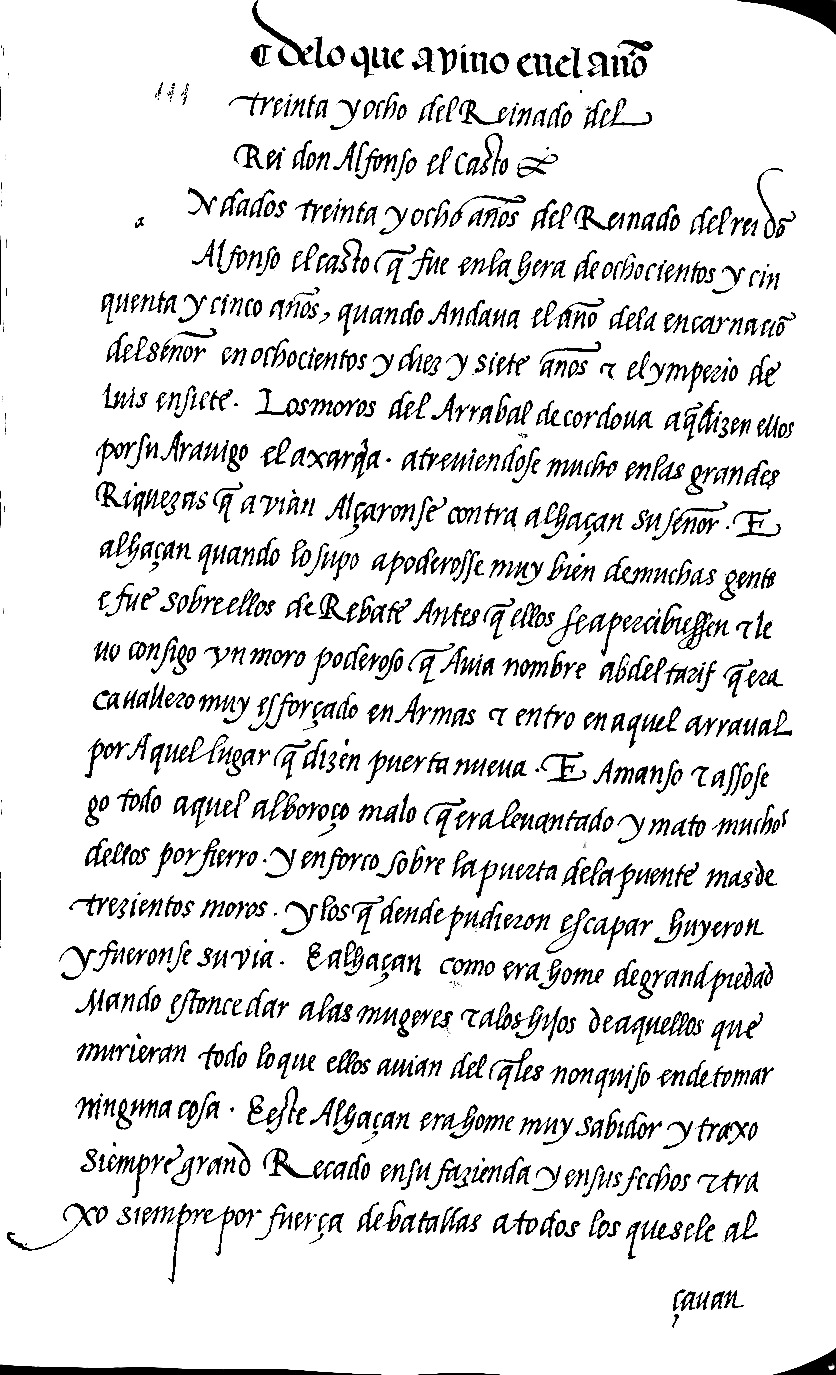 ¶ delo que avino enel año
treinta y ocho del Reinado del
Rei don Alfonso el casto &
Y dados treinta y ocho años del Reinado del rei dõ
a
Alfonso el casto q̃ fue enla hera de ochocientos y cin
quenta y cinco años, quando Andaua el año dela encarnaciõ
del señor en ochocientos y diez y siete años ⁊ el ymperio de
Luis en siete. Los moros del Arrabal de cordoua a q̃ dizen ellos
por su Arauigo el axarq̃a. atreuiendose mucho enlas grandes
Riquezas q̃ avian Alçaronse contra alhaçan su señor. E
alhaçan quando lo supo apoderosse muy bien de muchas gente
e fue sobre ellos de Rebate Antes q̃ ellos se apercibiessen ⁊ le
uo consigo vn moro poderoso q̃ Auia nombre abdeltarif q̃ era
cauallero muy esforçado en Armas ⁊ entro en aquel arraual
por Aquel lugar q̃ dizen puerta nueva. E Amanso ⁊ assose
go todo aquel alboroço malo q̃ era leuantado y mato muchos
dellos por fierro. y enforco sobre la puerta dela puente mas de
trezientos moros. y los q̃ dende pudieron escapar huyeron
y fueronse su via. E alhaçan como era home de grand piedad
Mando estonce dar a las mugeres ⁊ a los hijos de aquellos que
murieran todo lo que ellos auian del q̃ les non quiso ende tomar
ninguna cosa. E este Alhaçan era home muy sabidor y traxo
siempre grand Recado en su fazienda y en sus fechos ⁊ tra
xo siempre por fuerça de batallas a todos los que se le al
çauan